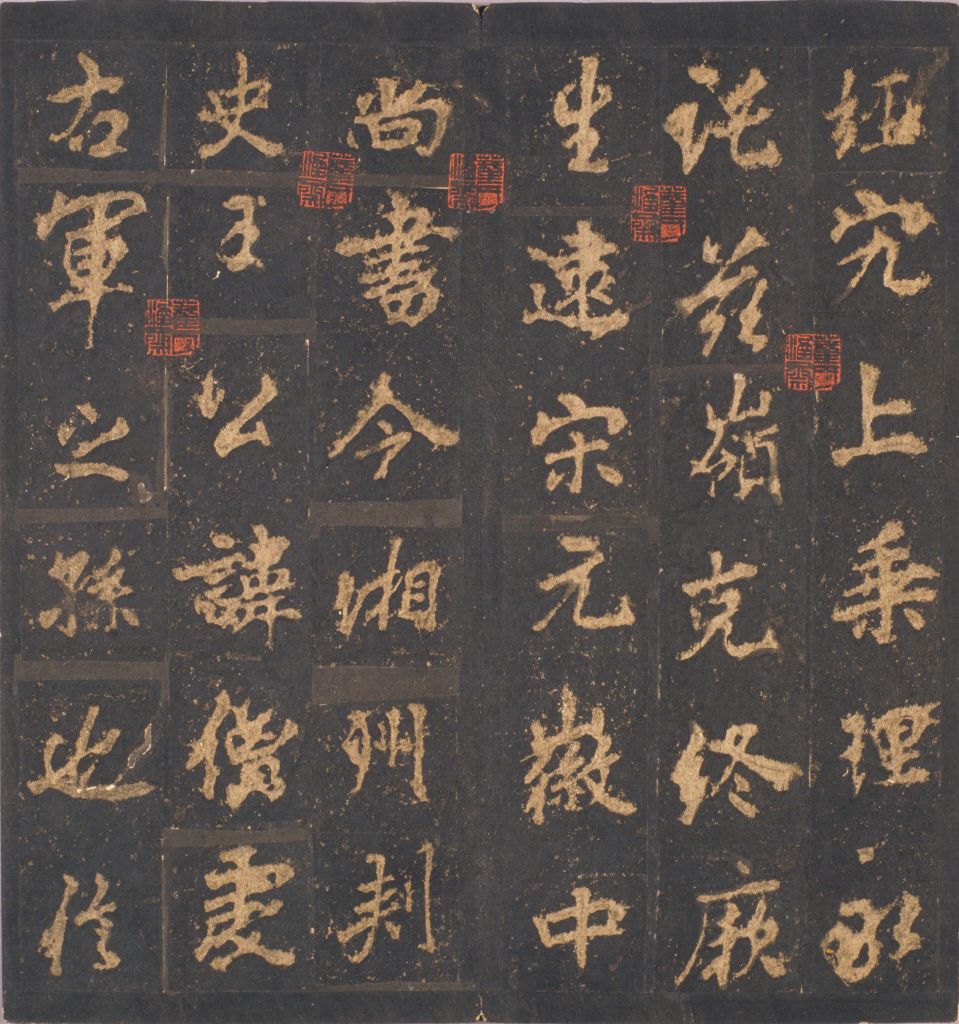 經究上乘理永
託茲嶺克終厥
生逮宋元徽中
尚書令湘州刾
史王公諱僧虔
右軍之孫也信